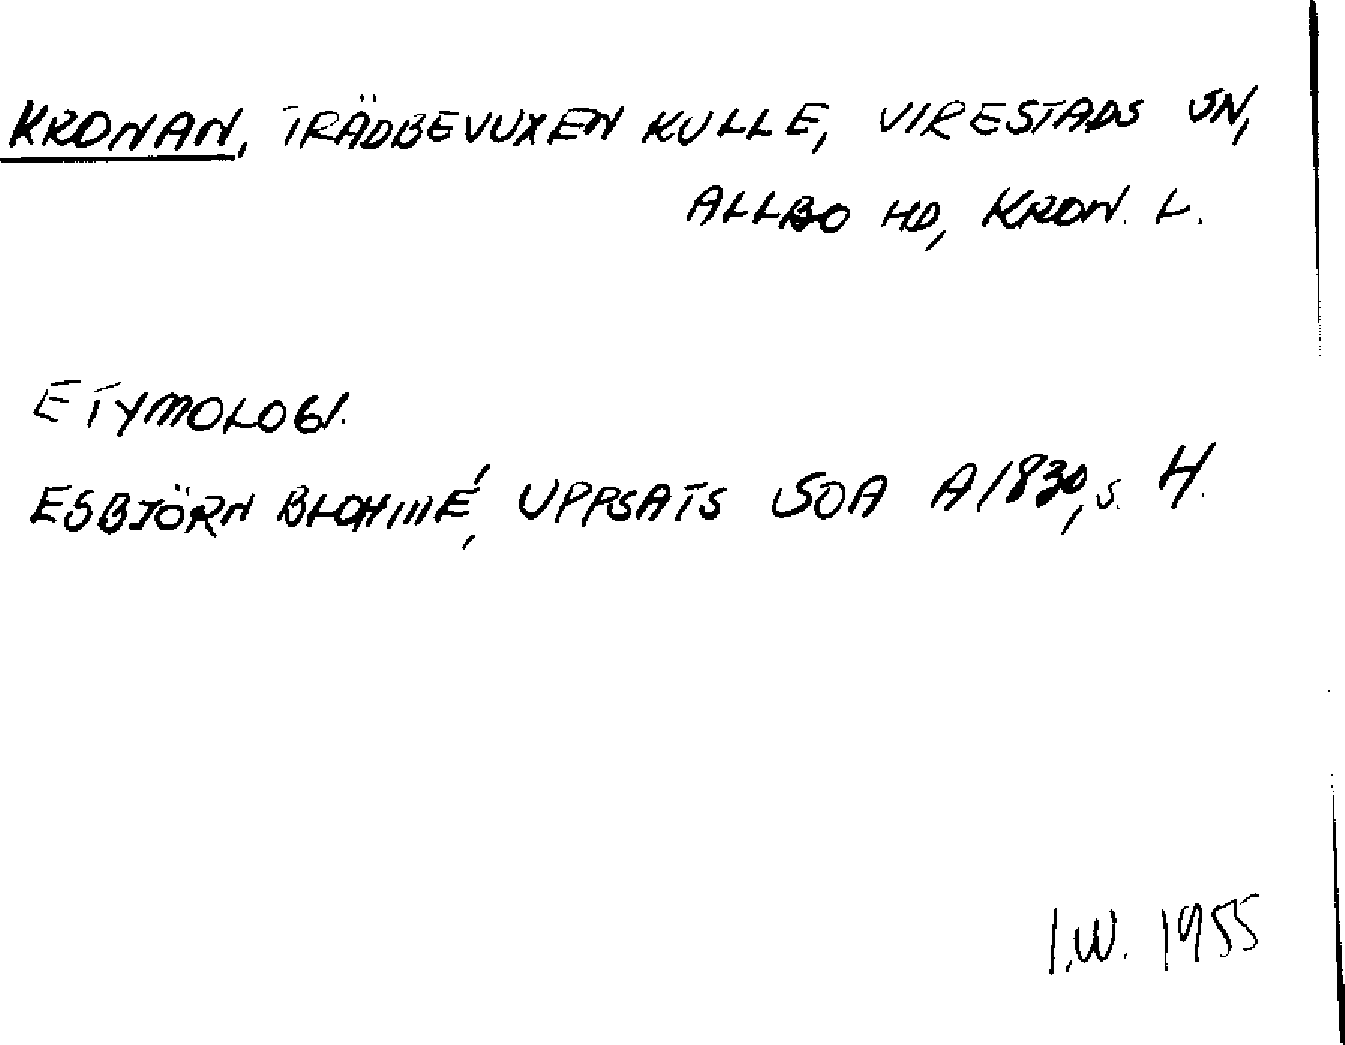 KRONAN, TRÄDBEVUXEN KULLE, VIRESTADS SN,
ALLBO HD, KRON. L.
ETYMOLOGI.
ESBJÖRN BLOHMÉ, UPPSATS SOA A1830, s. 4.
I.W. 1955